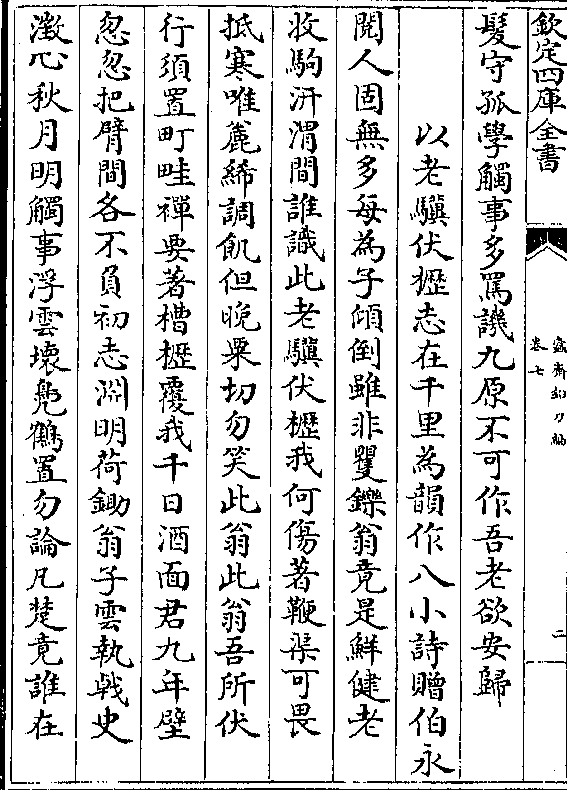 欽定四庫全書
卷七
二
髮守孤學觸事多罵譏九原不可作吾老欲安歸
以老驥伏櫪志在千里為韻作八小詩贈伯永
閱人固無多每為子傾倒雖非矍鑠翁竟是鮮健老
牧駒汧渭間誰識此老驥伏櫪我何傷著鞭渠可畏
抵寒唯麄絺調飢但晚粟切勿笑此翁此翁吾所伏
行須置町畦禪要著槽櫪覆我千日酒面君九年壁
忽忽把臂間各不負初志淵明荷鋤翁子雲執㦸史
澂心秋月明觸事浮雲壞鳧鶴置勿論凡楚竟誰在